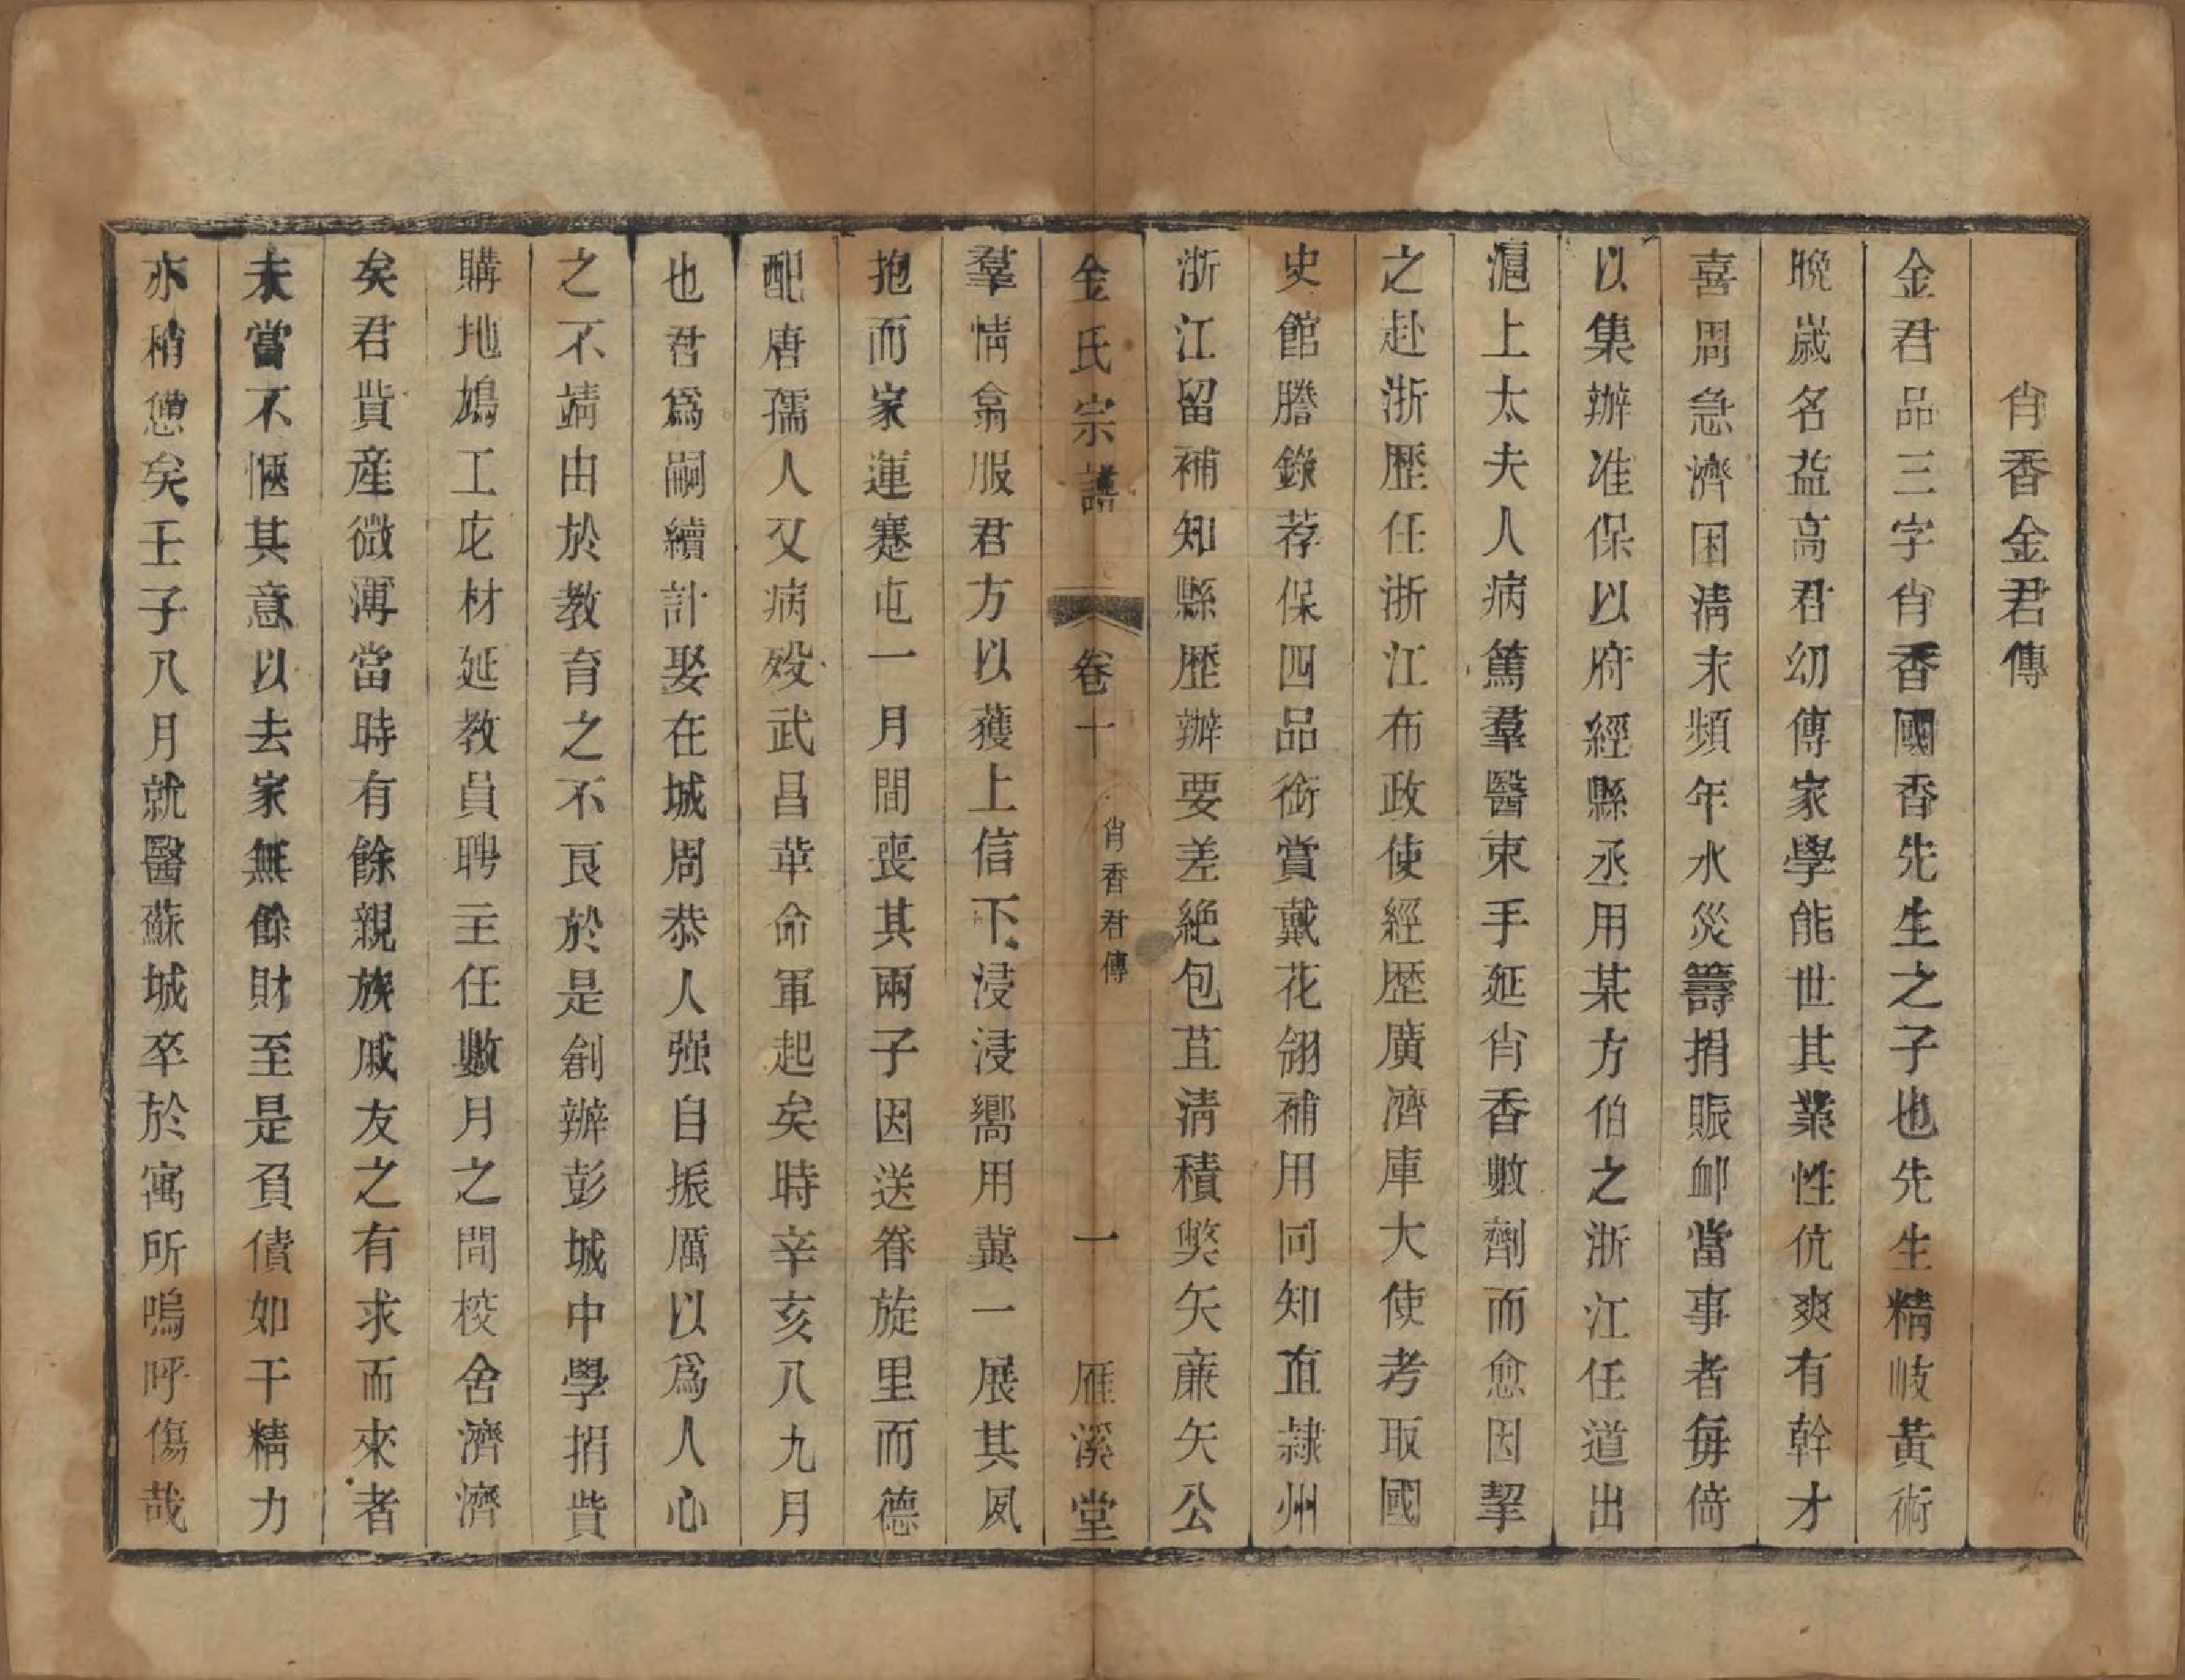 肖香金君傳
金君品三字肖香國香先生之子也先生精岐黃術
晚歲名益高君幼傳家學能世其業性伉爽有幹才
喜周急濟困清末頻年水災籌捐賑卹當事者每倚
以集辦准保以府經縣丞用某方伯之浙江任道出
滬上太夫人病篤羣醫束手延肖香數劑而愈因挈
之赴浙歷任浙江布政使經歷廣濟庫大使考取國
史館謄錄荐保四品銜賞戴花翎補用同知直隸州
浙江留補知縣歷辦要差絕包苴清積獘矢廉矢公
金氏宗譜 卷十 肖香君傳 一 雁溪堂
羣情翕服君方以獲上信下浸浸嚮用冀一展其夙
抱而家運蹇屯一月間喪其兩子因送眷旋里而德
配唐孺人又病歿武昌革命軍起矣時辛亥八九月
也君爲嗣續計娶在城周恭人强自振厲以爲人心
之不靖由於教育之不良於是創辦彭城中學捐貲
購地鳩工庀材延教員聘主任數月之間校舍濟濟
矣君貲産微薄當時有餘親族戚友之有求而來者
未嘗不愜其意以去家無餘財至是負債如干精力
亦稍憊矣壬子八月就醫蘇城卒於寓所嗚呼傷哉